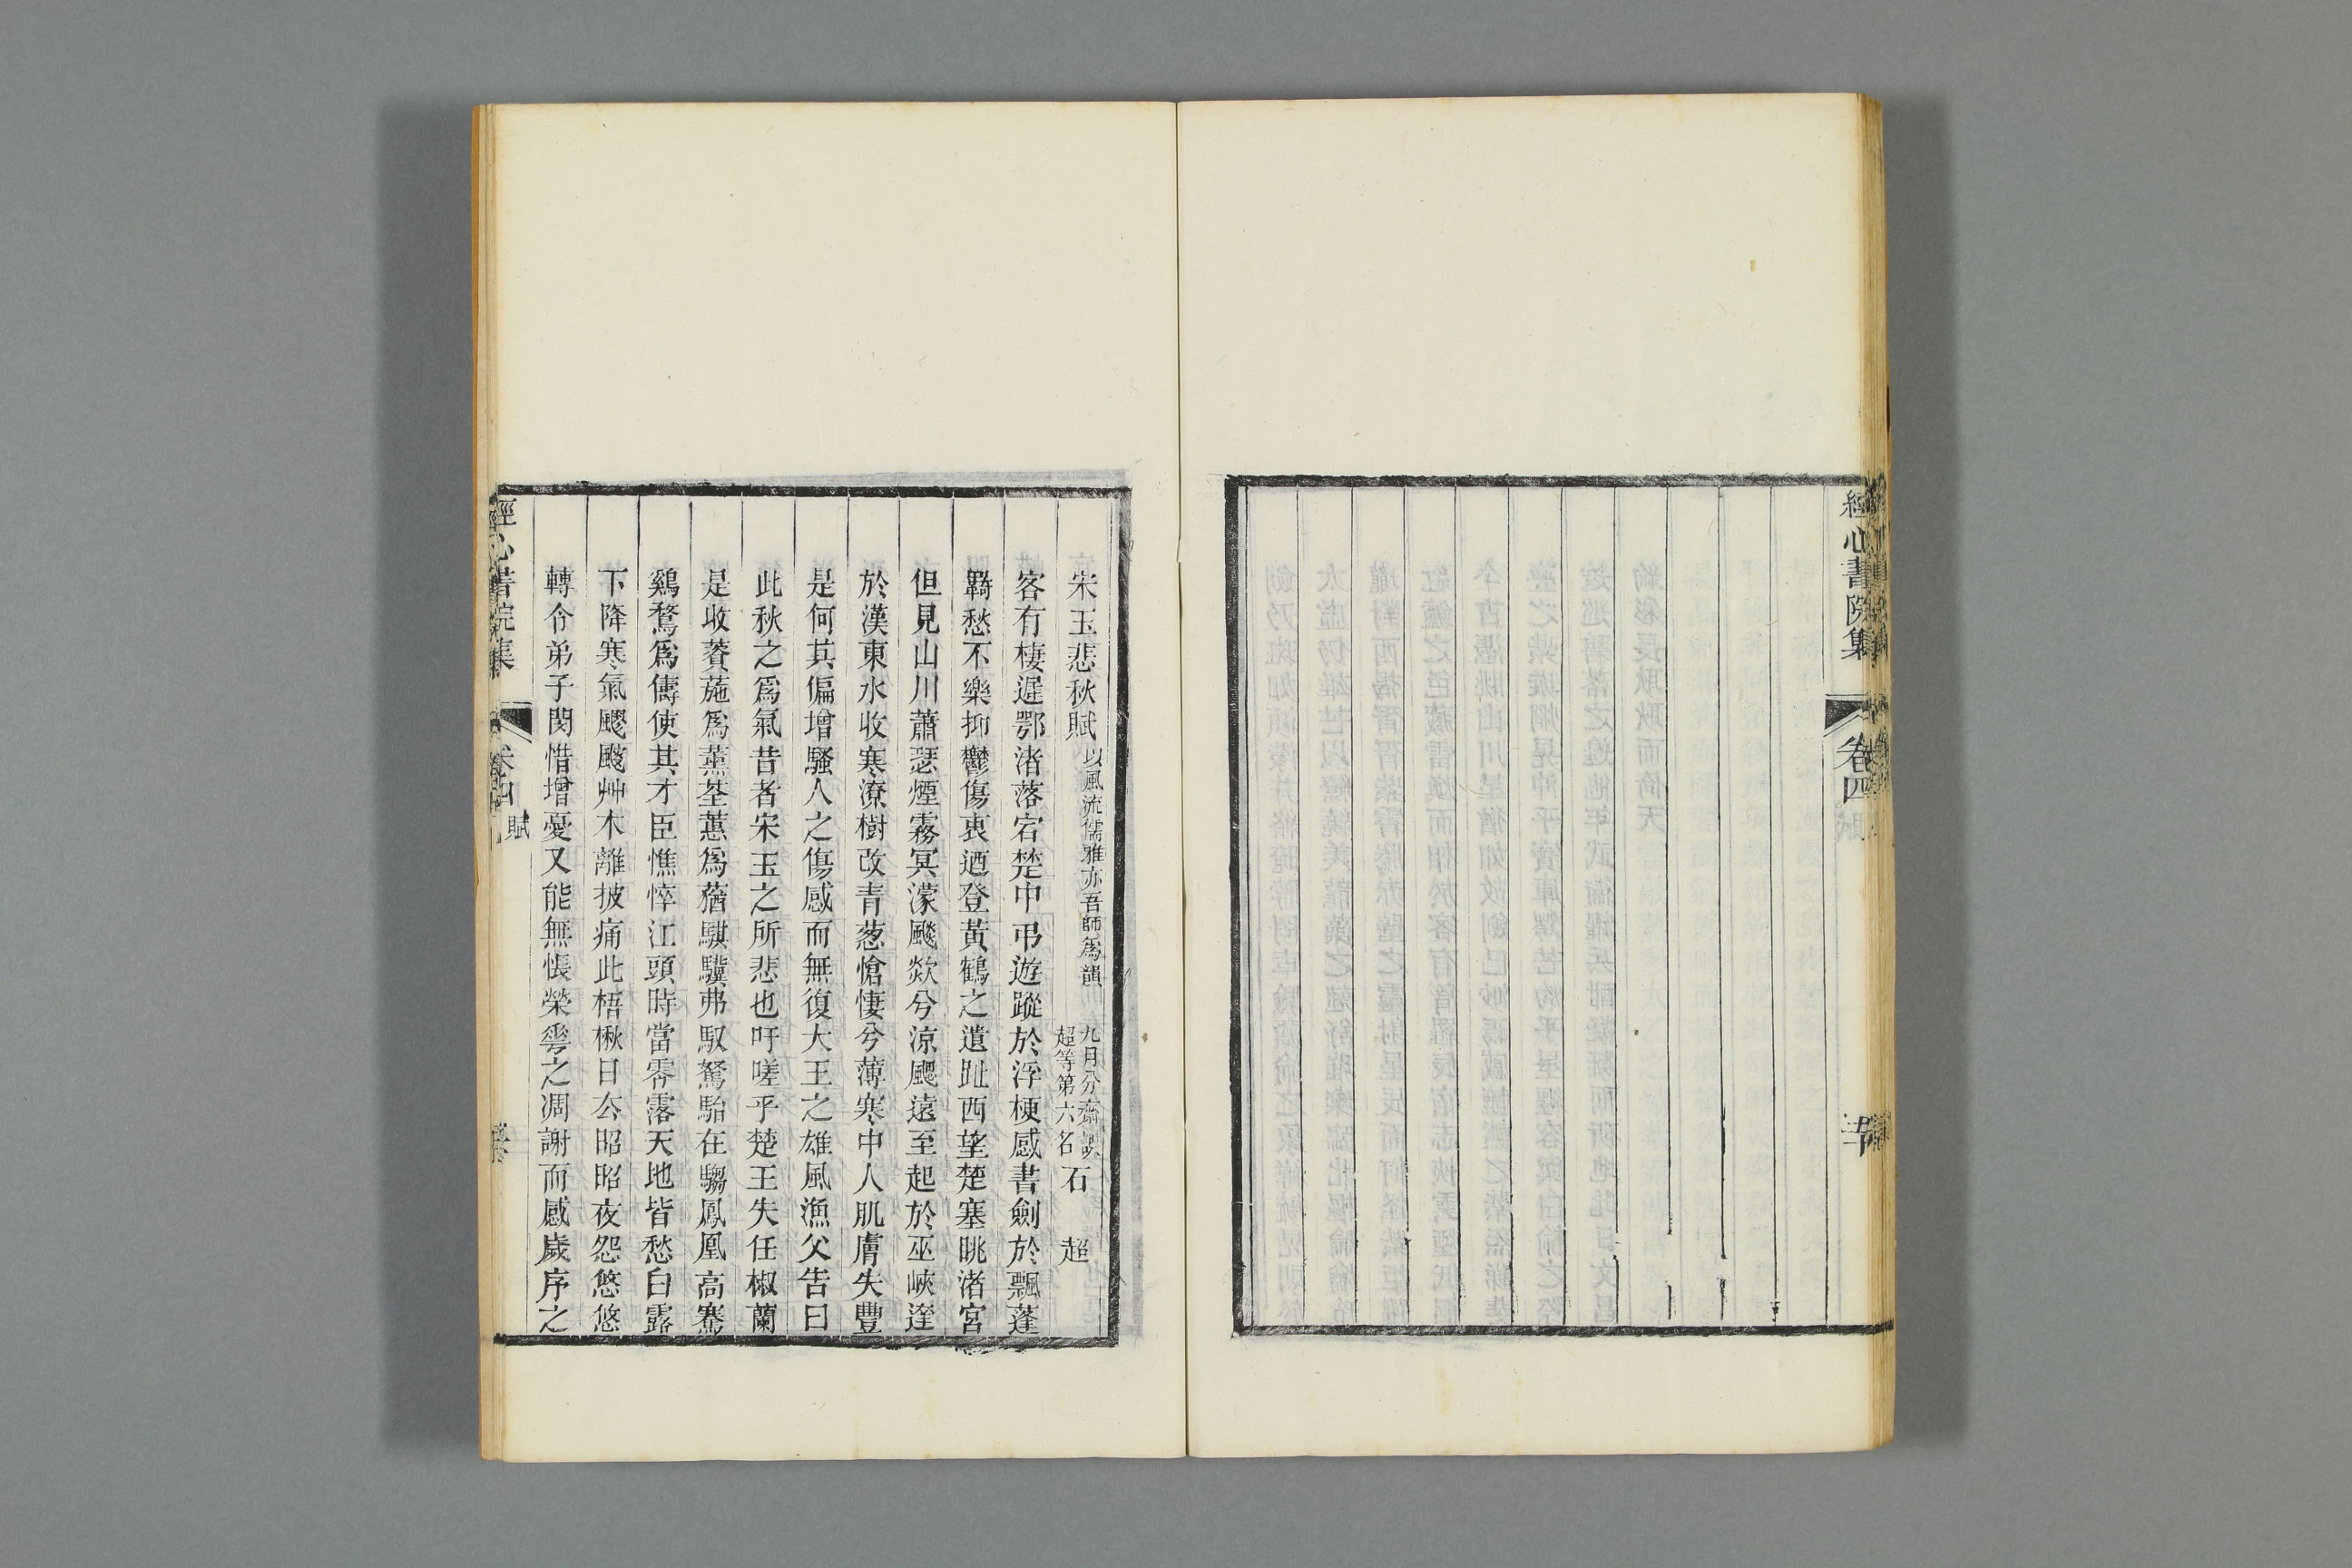 經心書院集 卷四
宋玉悲秋賦 以風流儒雅亦吾師爲韻 九月分齋課超等第六名 石 超
客有棲遲鄂渚落宕楚中弔遊蹤於浮梗感書劍於飄蓬
羈愁不樂抑鬱傷衷迺登黃鶴之遺趾西望楚塞眺渚宮
但見山川蕭瑟煙霧冥濛颷欻兮涼颸遠至起於巫峽達
於漢東水收寒潦樹改青葱愴悽兮薄寒中人肌膚失豐
是何其偏增騷人之傷感而無復大王之雄風漁父告曰
此秋之爲氣昔者宋玉之所悲也吁嗟乎楚王失任椒蘭
是收薋葹爲薰荃蕙爲蕕騏驥弗馭駑駘在騶鳳凰高騫
鷄鶩爲儔使其才臣憔悴江頭時當零落天地皆愁白露
下降寒氣颼飂艸木離披痛此梧楸日厺昭昭夜怨悠悠
轉令弟子閔惜增憂又能無悵榮蕚之凋謝而感歲序之
經心書院集 卷四 賦